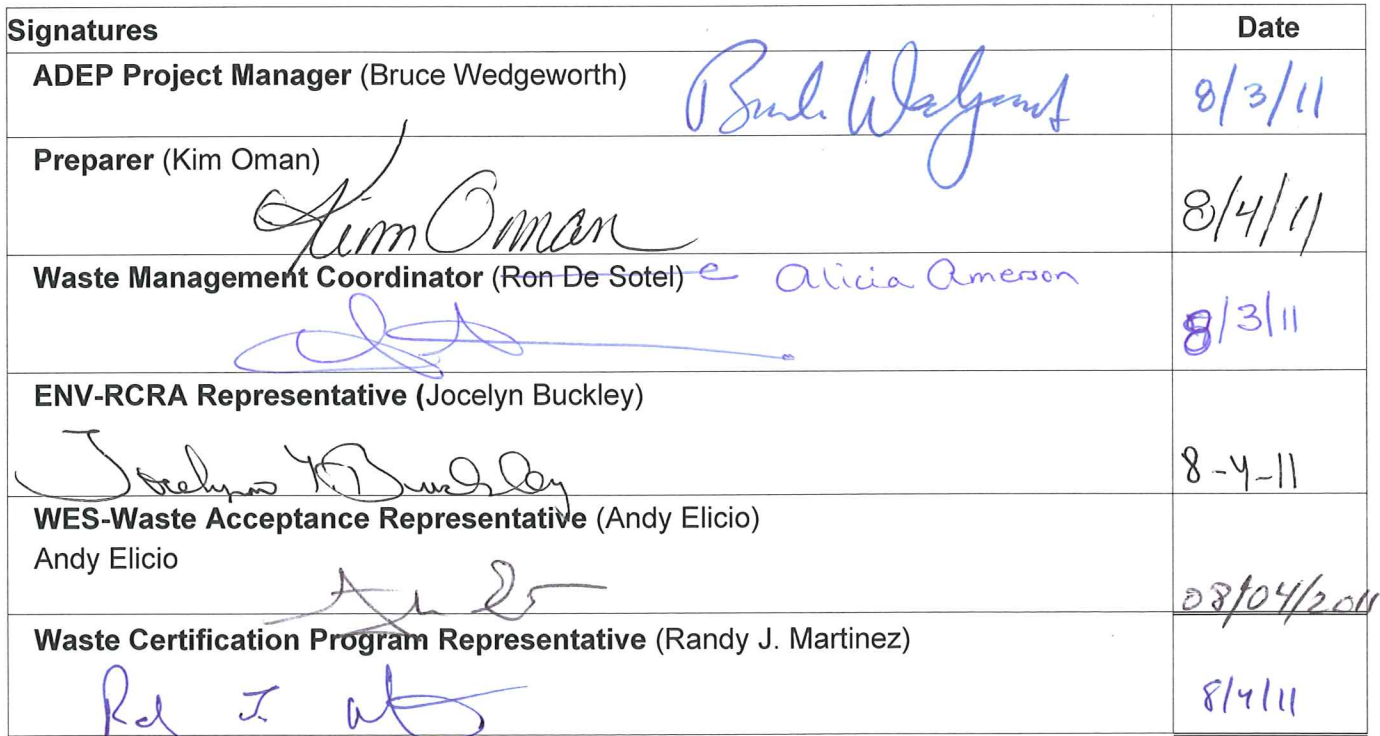 Signatures Date
ADEP Project Manager (Bruce Wedgeworth) 8/3/11
Preparer (Kim Oman)
Kim Oman 8/4/11
Waste Management Coordinator (Ron De Sotel) Alicia Amerson
8/3/11
ENV-RCRA Representative (Jocelyn Buckley)
Jocelyn Y. Buckley 8-4-11
WES-Waste Acceptance Representative (Andy Elicio)
Andy Elicio
08/04/2011
Waste Certification Program Representative (Randy J. Martinez)
8/4/11